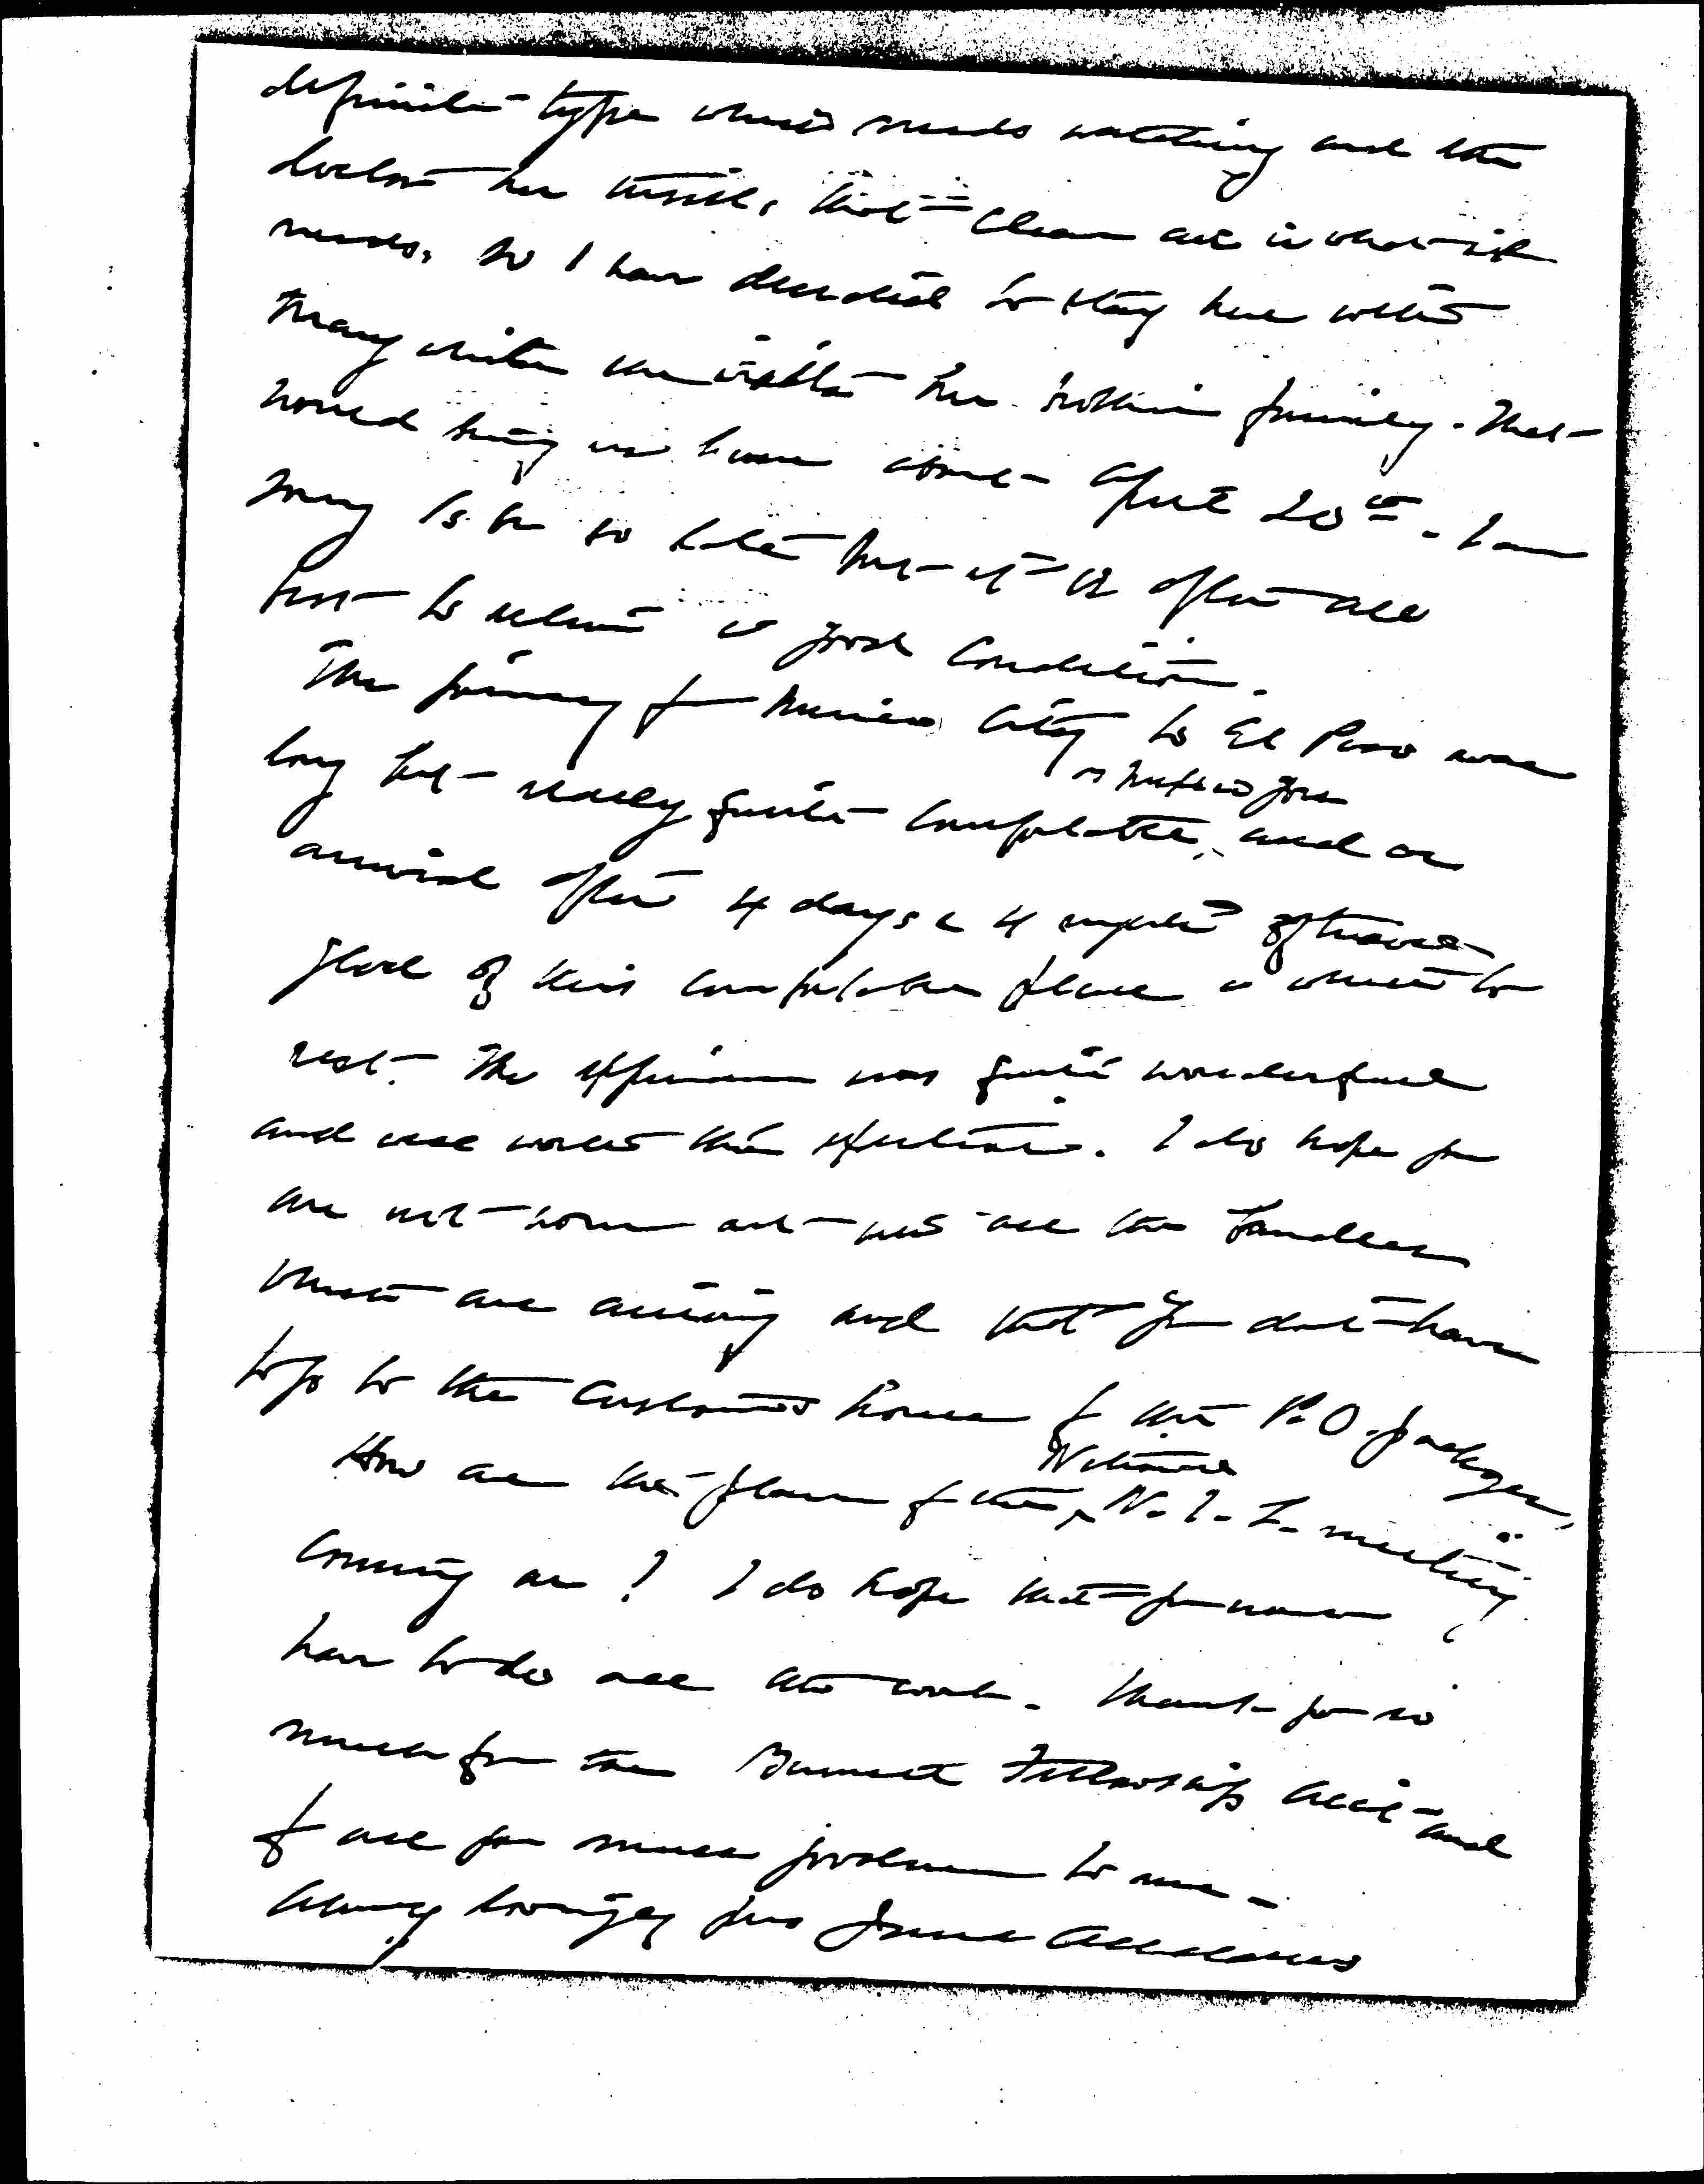 definite type which needs watching and the
doctor here insists that clean air is what it
needs, so I have decided to stay here with
Mary while she visits her brother's family. That
would bring us home about April 20th. I am
sorry to be so late but it is after all
best to return in good condition.
The journey from Mexico City to El Paso was
long but really quite comfortable, and on
arrival after 4 days & 4 nights of travel
glad of this comfortable place in which to
rest. The experience was quite wonderful
and well worth the exertion. I do hope you
are not worn out with all the bundles
which are arriving and that you don't have
to go to the Customs house for the P.O. packages.
How are the plans for the National W.I.L. meeting
coming on? I do hope that you won't
have to do all the work. Thank you so
much for the Bennett Fellowship and
for all your much goodness to me.
Always lovingly yours Jane Addams